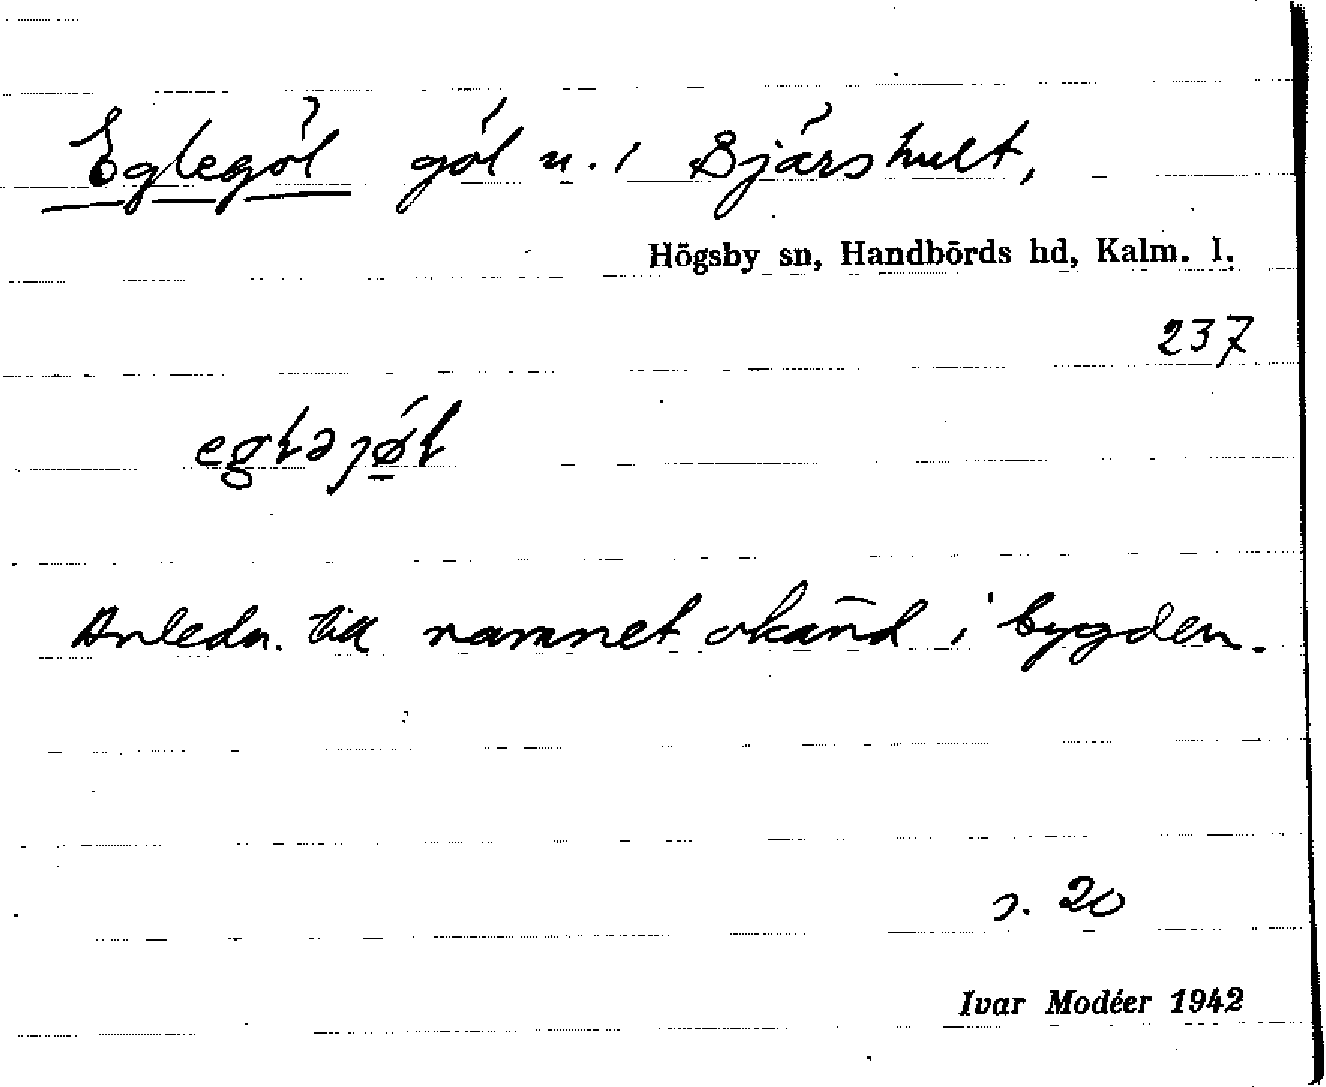 Eglegöl göl u. i Bjärshult,
Högsby sn, Handbörds hd, Kalm. l.
237
Anledn. till namnet okänd i bygden.
s. 20
Ivar Modéer 1942